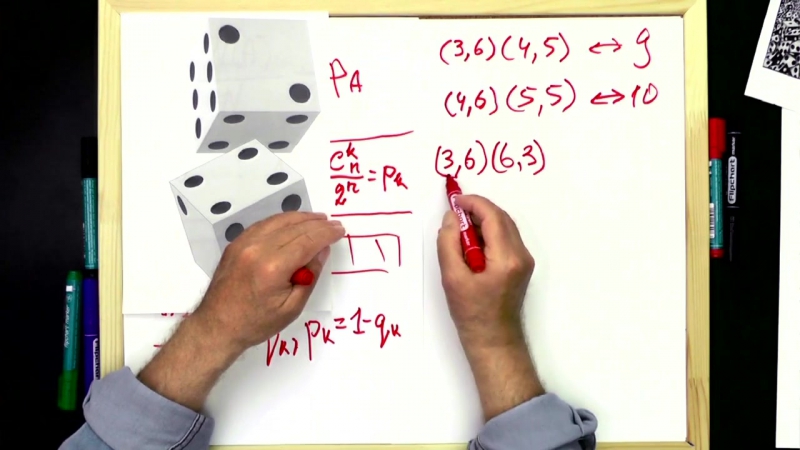 P_A
C_n^k / 2^n = P_k
P_k, P_k = 1 - q_k
(3,6)(4,5) ↔ 9
(4,6)(5,5) ↔ 10
(3,6)(6,3)
Flipchart
Flipchart